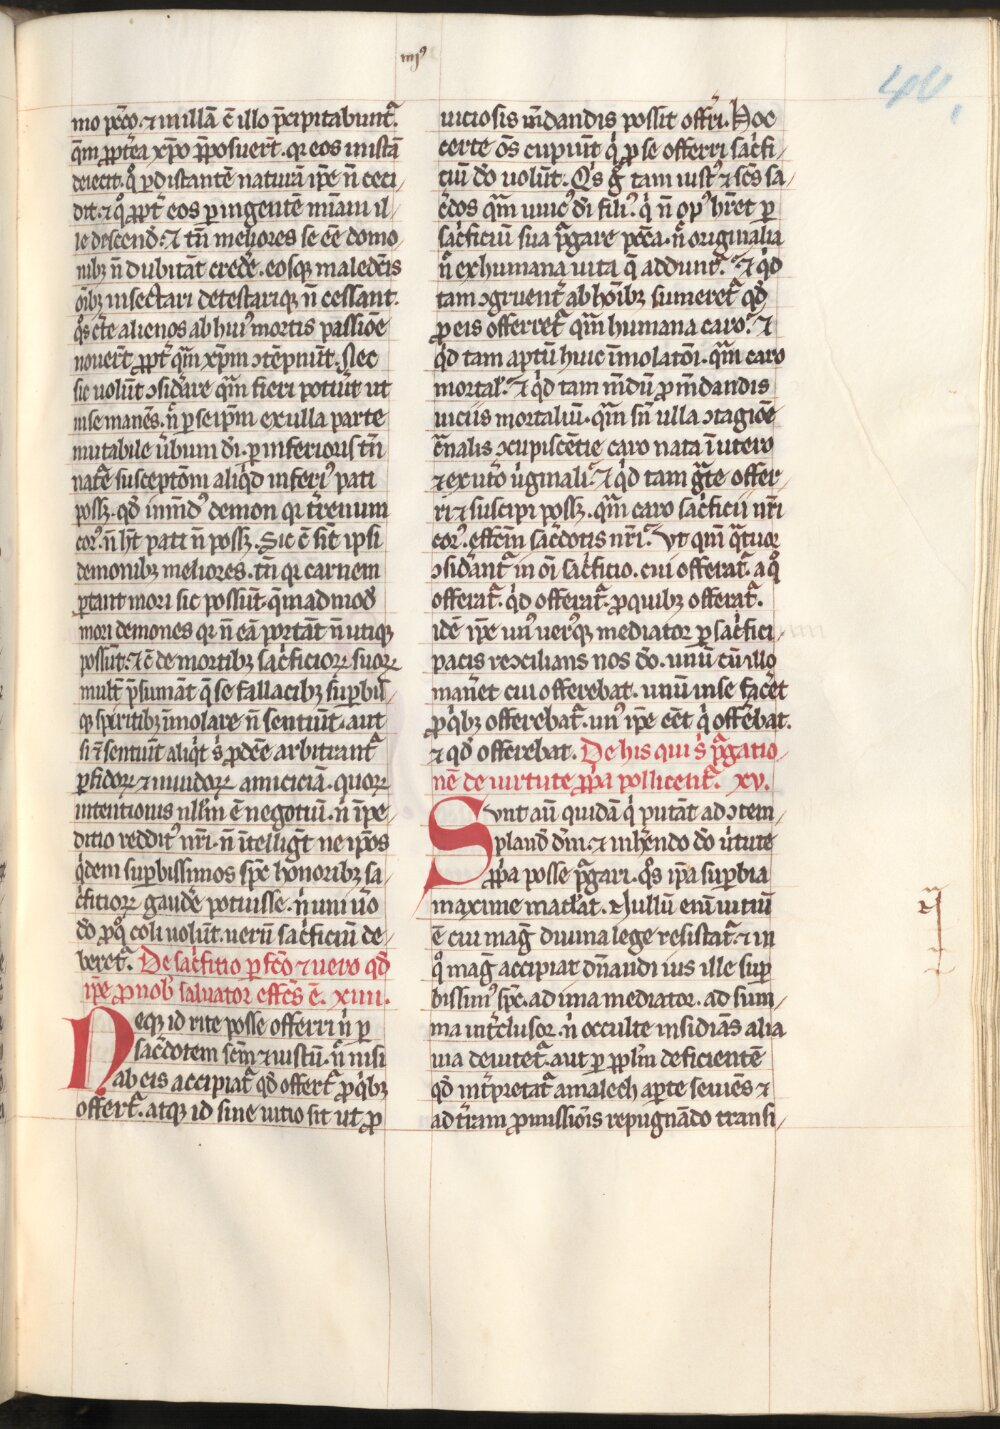 iiijꝰ
46
mo p̄cio ⁊ in illā cū illo p̄cipitabunt᷑.
q̄m ꝓpt̄ea xp̄o p̄posuer̄t. qr eos in istā
deiecit. qͦ ꝑ distantē naturā ip̄e nō ceci/
dit. ⁊ qͦ ꝓpt̄ eos ꝑ ingentē mīam il/
le descend̄. Et tn̄ meliores se eē demo/
nibꝫ n̄ dubitāt cred̄e. eosqꝫ maled̄cis
oībꝫ insectari detestariqꝫ n̄ cessant.
qͦs c̄te alienos ab huiꝰ mortis passiōe
nouer̄t ꝓpt̄ qͣm xp̄m ↄtēpnūt. Nec
sic uolūt ↄsid̄are qͣm fieri potuīt ut
in se manēs. n̄ ꝑ se ip̄m ex ulla parte
mutabile ūbum dī. ꝑ inferioris tn̄
natͤ susceptōm aliqͥd inferiꝰ pati
possꝫ. qd̄ inmūdꝰ demon qr t̄renum
corꝰ n̄ hꝫ pati n̄ possꝫ. Sic cū sīt ipsi
demonibꝫ meliores. tn̄ qr carnem
portant mori sic possūt. qͤmadmod̄
mori demones qr n̄ eā portāt n̄ utiqꝫ
possūt. Et cū de mortibꝫ sacͥficioꝝ suoꝝ
mult̄ p̄sumāt qͤ se fallacibꝫ suꝑbis/
qꝫ spiritibꝫ īmolare n̄ sentiūt. aut
si ⁊ sentiūt aliqͥd sͥ ꝓdeē arbitrant᷑
ꝑfidoꝝ ⁊ inuidoꝝ amiciciā. quoꝝ
intentionis nullm̄ ē negotiū. nͥ īpe/
ditio redditꝰ nr̄i. n̄ ītelligt̄ ne ip̄os
qͥdem suꝑbissimos spc̄ honoribꝫ sa/
cͥficioꝝ gaudē potuisse. nͥ uni ūo
dō ꝓ qͦ coli uolūt. uerū sacͥficiū de/
beret᷑. De sacͥficio ꝑfc̄o ⁊ uero qd̄
ip̄e ꝓ nob̄ saluator effc̄s ē. xiiii.
Neqꝫ id rite posse offerri nͥ ꝑ
sacͤdotem scm̄ ⁊ iustū. nͥ nisi
ab eis accipiat᷑ qd̄ offert᷑ ꝓ qͥbꝫ
offert᷑. atqꝫ id sine uitio sit ut ꝓ
uiciosis mūdandis possit offerri. Hoc
certe om̄s cupiūt qͥ ꝓ se offerri sacͥfi/
ciū dō uolūt. Qͥs gͦ tam iustꝰ ⁊ sc̄s sa/
cͤdos qͣm unicꝰ dī filiꝰ. qͥ n̄ opꝰ hr̄et ꝑ
sacͥficiū sua p̄gare pcc̄a. nͤ originalia
nͤ ex humana uita qͤ addunt᷑. Et qͥd
tam ↄgruent̄ ab hoībꝫ sumeret᷑ qd̄
ꝓ eis offerret᷑ qͣm humana caro. Et
qͥd tam aptū huic īmolatōi. qͣm caro
mortal᷑. Et qͥd tam mūdū ꝓ mūdandis
uiciis mortaliū. qͣm sn̄ ulla ↄtagiōe
cͣnalis ↄcupiscētie caro nata ī utero
⁊ ex utͦo ūginali. Et qͥd tam gͣte offer/
ri ⁊ suscipi possꝫ. qͣm caro sacͥficii nr̄i
corꝰ. effcm̄ sacͤdotis nr̄i. Ut qm̄ qͣtuor
ↄsid̄ant᷑ in oī sacͥficio. cui offerat᷑. a qͦ
offerat᷑. qͥd offerat᷑. ꝓ quibꝫ offerat᷑.
idē ip̄e unꝰ uerꝰqꝫ mediator ꝑ sacͥfici/
pacis reↄcilians nos dō. unū cū illo
man̄et cui offerebat. unū in se facēt
ꝓ qͥbꝫ offerebat᷑. unꝰ ip̄e eēt qͥ offēbat.
⁊ qd̄ offerebat. De his qui sͥ p̄gatio/
nē de uirtute ꝓpͥa pollicent᷑. xv.
Sunt aūt quidā qͥ putāt ad ↄtem/
pland̄ dm̄. ⁊ inh̄endo dō ūtute
ꝓpͥa posse p̄gari. qͦs ip̄a suꝑbia
maxime macl̄at. Nullū enī uitiū
ē cui magͥ diuina lege resistat᷑. ⁊ in
qͦ magͥ accipiat dn̄andi ius ille suꝑ/
bissimꝰ spc̄. ad ima mediator. ad sum/
ma int̄clusor. nͥ occulte insidiās alia
uia deuitet᷑. aut ꝑ ppl̄m deficientē
qd̄ int̄pretat᷑ amalech aꝑte seuiēs ⁊
ad t̄ram ꝓmissiōis repugnādo transi/